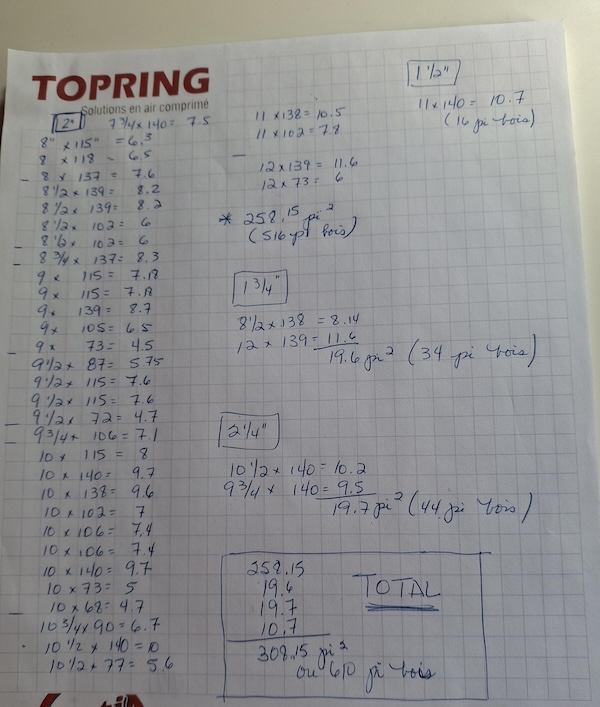 TOPRING
Solutions en air comprimé
2"
7 3/4 x 140 = 7.5
8" x 115" = 6.3
8 x 118 - 6.5
8 x 137 = 7.6
8 1/2 x 139 = 8.2
8 1/2 x 139 = 8.2
8 1/2 x 102 = 6
8 1/2 x 102 = 6
8 3/4 x 137 = 8.3
9 x 115 = 7.18
9 x 115 = 7.18
9 x 139 = 8.7
9 x 105 = 6.5
9 x 73 = 4.5
9 1/2 x 87 = 5.75
9 1/2 x 115 = 7.6
9 1/2 x 115 = 7.6
9 1/2 x 72 = 4.7
9 3/4 x 106 = 7.1
10 x 115 = 8
10 x 140 = 9.7
10 x 138 = 9.6
10 x 102 = 7
10 x 106 = 7.4
10 x 106 = 7.4
10 x 140 = 9.7
10 x 73 = 5
10 x 68 = 4.7
10 3/4 x 90 = 6.7
10 1/2 x 140 = 10
10 1/2 x 77 = 5.6
11 x 138 = 10.5
11 x 102 = 7.8
12 x 139 = 11.6
12 x 73 = 6
* 258.15 pi²
(516 pi bois)
1 3/4"
8 1/2 x 138 = 8.14
12 x 139 = 11.6
19.6 pi² (34 pi bois)
2 1/4"
10 1/2 x 140 = 10.2
9 3/4 x 140 = 9.5
19.7 pi² (44 pi bois)
258.15
19.6
19.7
10.7
308.15 pi²
ou 610 pi bois
TOTAL
1 1/2"
11 x 140 = 10.7
(16 pi bois)